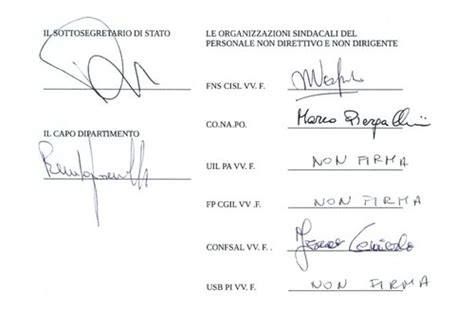 IL SOTTOSEGRETARIO DI STATO
LE ORGANIZZAZIONI SINDACALI DEL
PERSONALE NON DIRETTIVO E NON DIRIGENTE
FNS CISL VV. F.
CO.NA.PO.
Marco Piergallini
IL CAPO DIPARTIMENTO
UIL PA VV. F.
NON FIRMA
FP CGIL VV .F.
NON FIRMA
CONFSAL VV. F. .
USB PI VV. F.
NON FIRMA